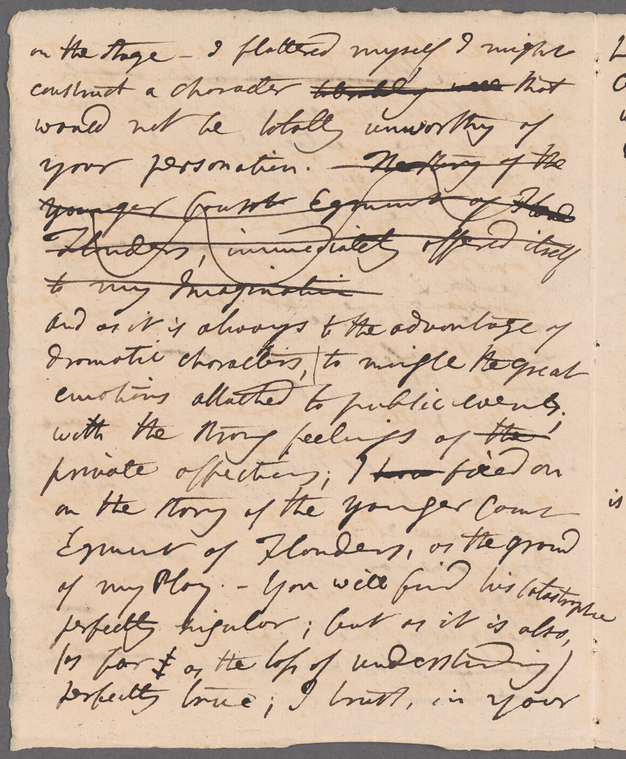 on the stage - I flattered myself I might
construct a character that
would not be totally unworthy of
your personation. - The story of the
younger Count Egmont of
Flanders, immediately offered itself
to my Imagination
and as it is always to the advantage of
dramatic characters, to mingle the great
emotions attached to public events,
with the strong feelings of the
private affections; I have fixed on
on the story of the younger Count
Egmont of Flanders, as the ground
of my Play. - You will find his catastrophe
perfectly singular; but as it is also,
(as far as the loss of understanding)
perfectly true; I trust, in your
is